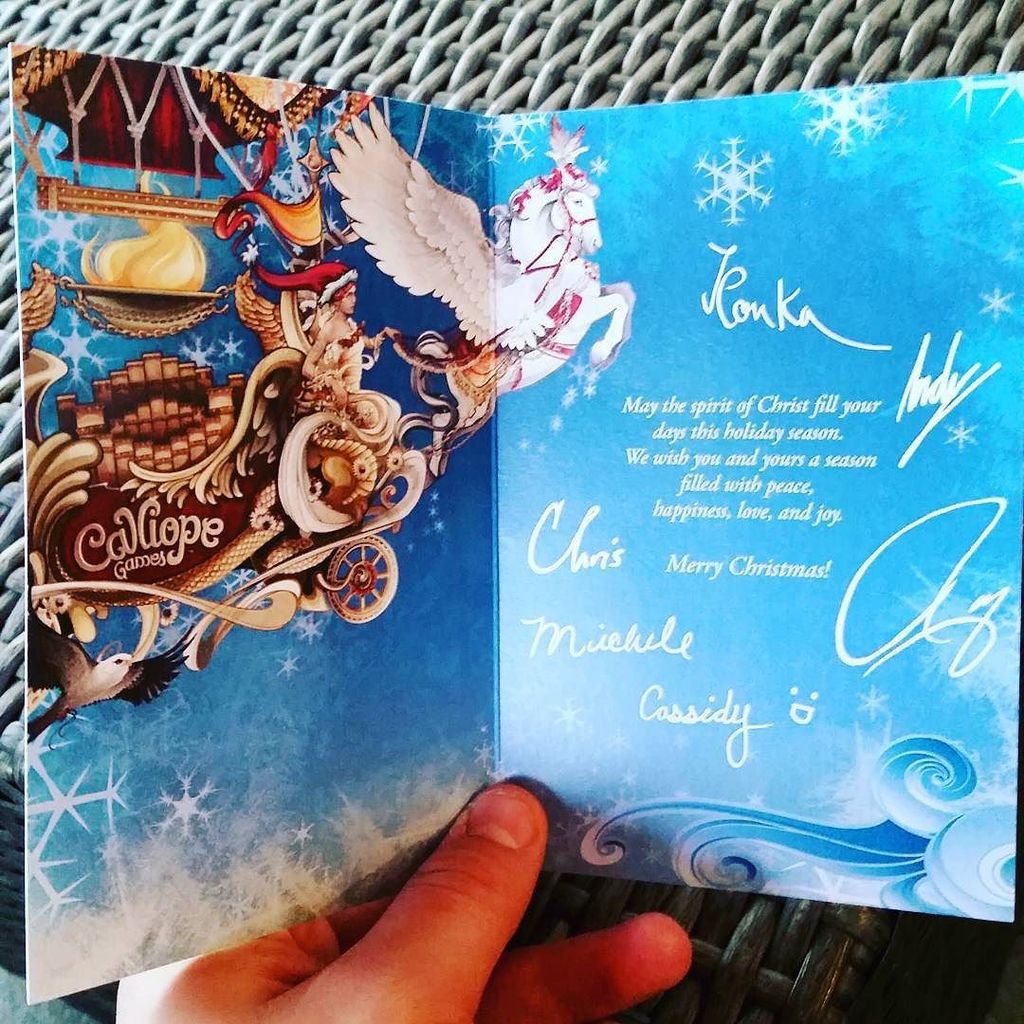 Calliope
Games
Konka
Indy
May the spirit of Christ fill your
days this holiday season.
We wish you and yours a season
filled with peace,
happiness, love, and joy.
Chris
Merry Christmas!
Michele
Cassidy